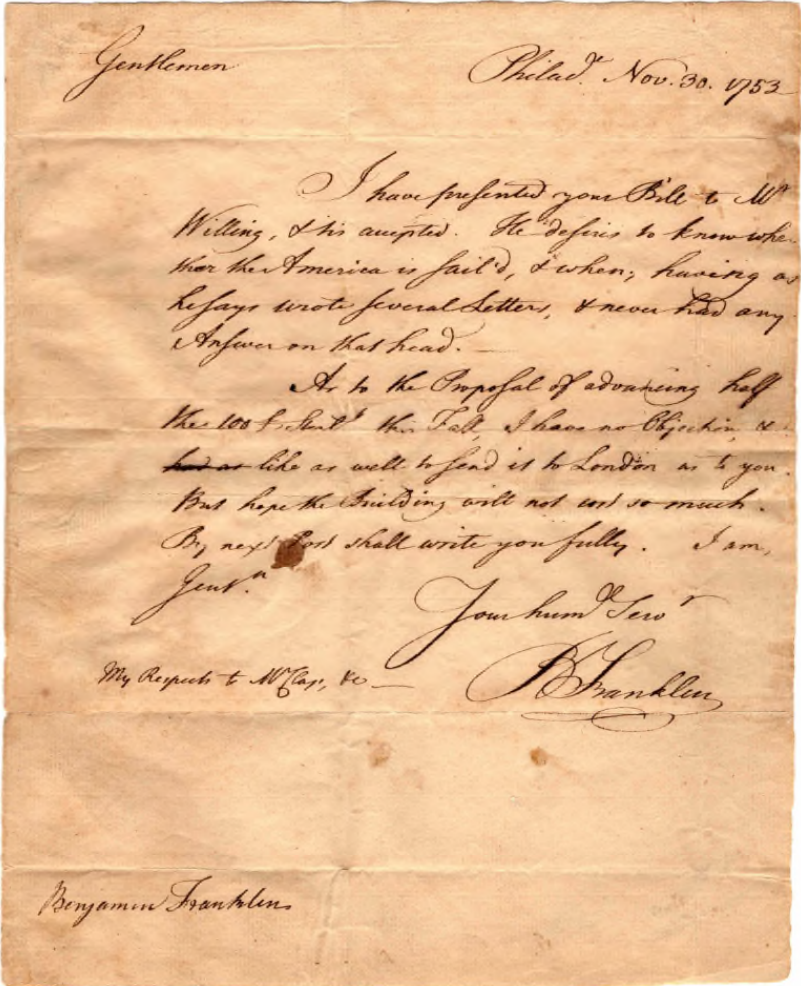 Gentlemen
Philad.ᵃ Nov. 30. 1753
I have presented your Bill to Mʳ
Willing, & 'tis accepted. He desires to know whe-
ther the America is sail'd, & when; having as
he says wrote several Letters, & never had any
Answer on that head. —
As to the Proposal of advancing half
the 100 £ Sterl.ᵍ this Fall, I have no Objection, &
had as like as well to send it to London as to you.
But hope the Building will not cost so much.
By next Post shall write you fully. I am,
Gentⁿ.
Your humᵉ Servᵗ
B Franklin
My Respects to Mʳ Clap, &c —
Benjamin Franklin